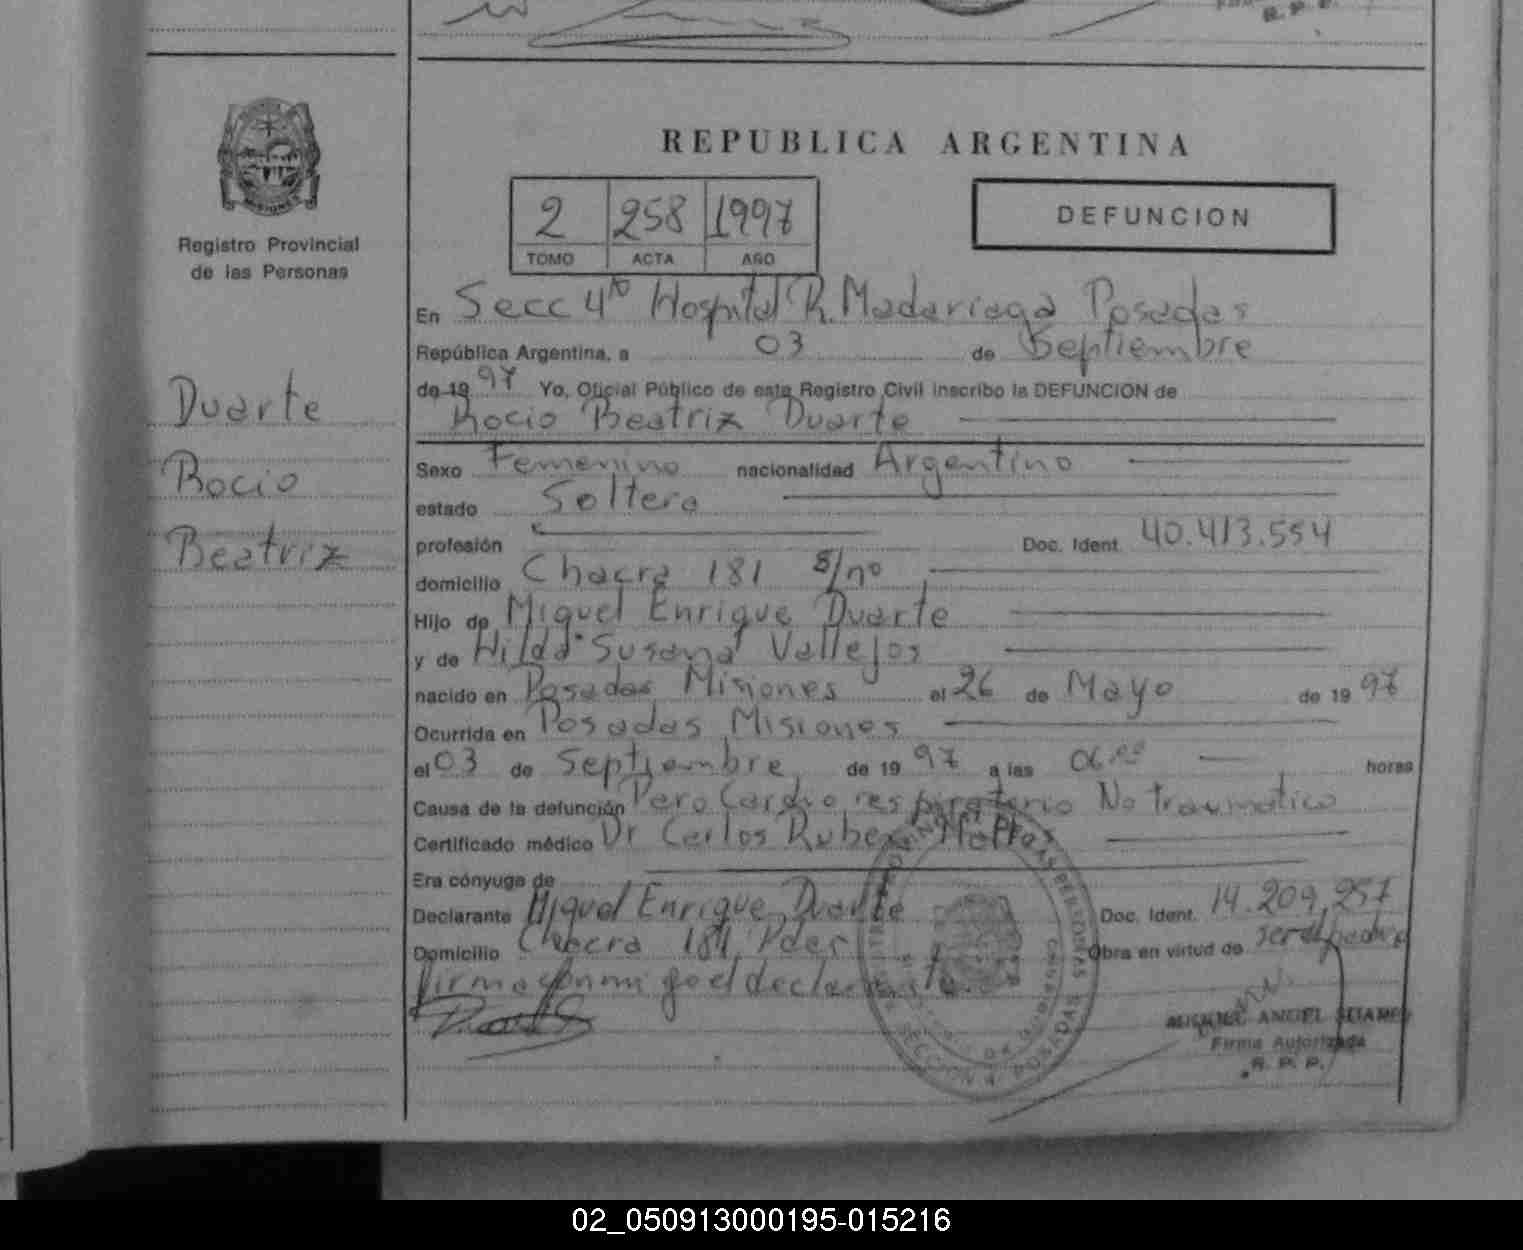 REPUBLICA ARGENTINA
MISIONES
Registro Provincial
de las Personas
2 258 1997
TOMO ACTA AÑO
DEFUNCION
Duarte
Rocio
Beatriz
En Secc 4ta Hospital R. Madariaga Posadas
República Argentina, a 03 de Septiembre
de 19 97 Yo, Oficial Público de este Registro Civil inscribo la DEFUNCION de
Rocio Beatriz Duarte
Sexo Femenino nacionalidad Argentino
estado Soltera
profesión Doc. Ident. 40.413.554
domicilio Chacra 181 S/no
Hijo de Miguel Enrique Duarte
y de Hilda Susana Vallejos
nacido en Posadas Misiones el 26 de Mayo de 19 97
Ocurrida en Posadas Misiones
el 03 de Septiembre de 19 97 a las 06.00 horas
Causa de la defunción Paro Cardio respiratorio No traumatico
Certificado médico Dr Carlos Ruben
Era cónyuge de
Declarante Miguel Enrique Duarte Doc. Ident. 14.209.257
Domicilio Chacra 181 Pdas Obra en virtud de ser el padre
Firma conmigo el declarante.
MIGUEL ANGEL SUAREZ
Firma Autorizada
R. P. P.
02_050913000195-015216